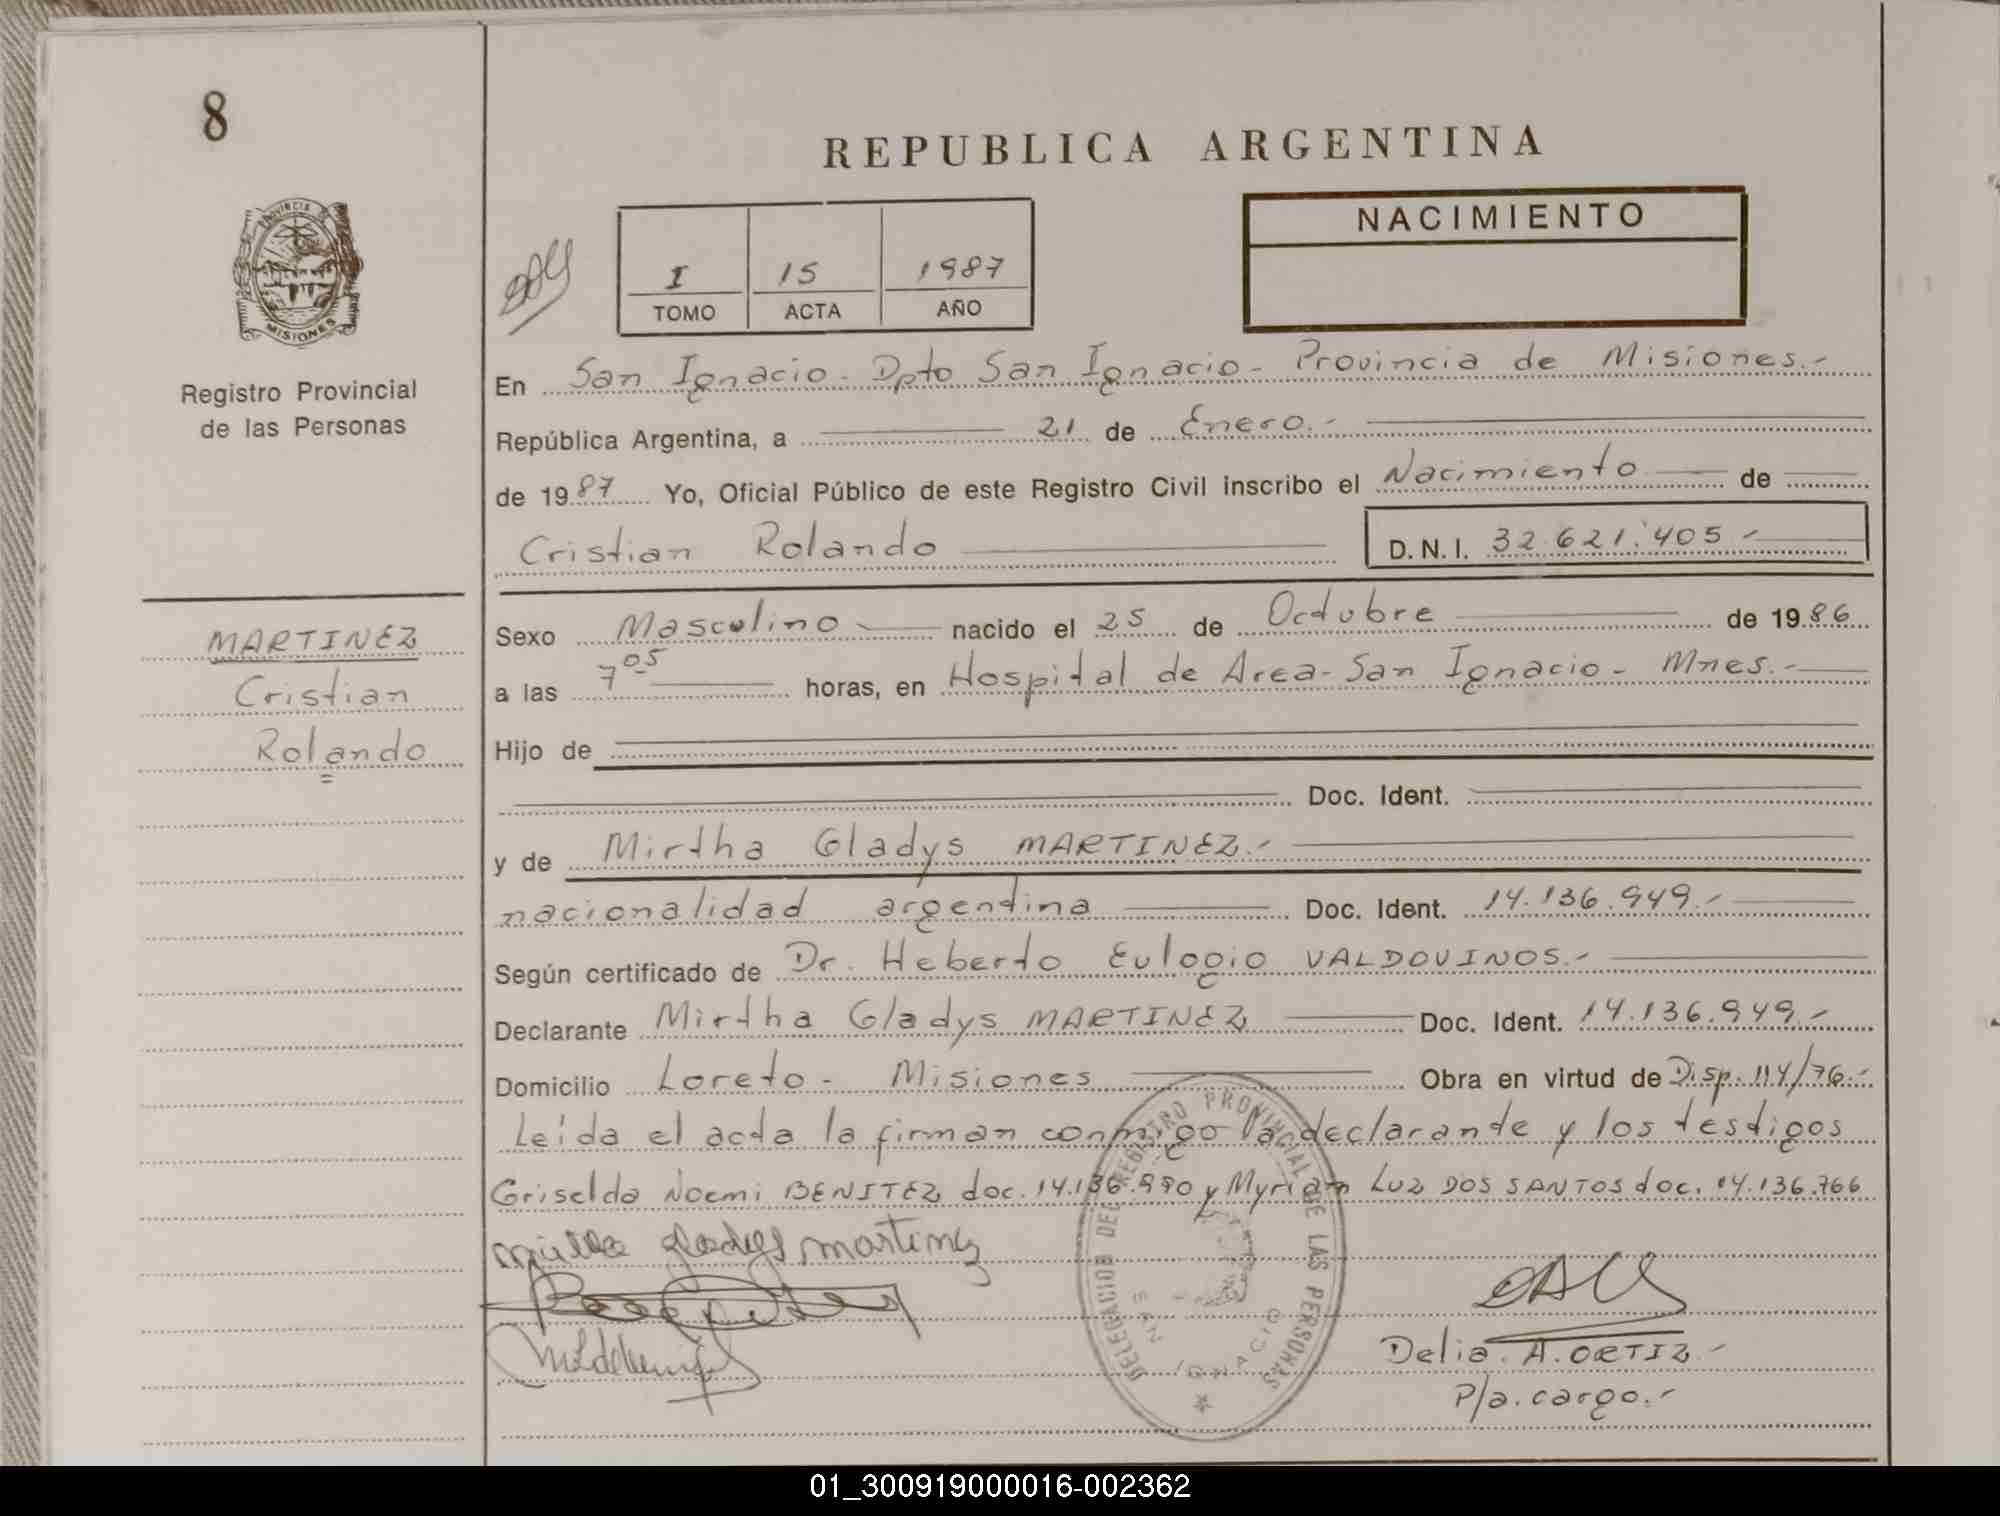 8
REPUBLICA ARGENTINA
PROVINCIA DE
MISIONES
Registro Provincial
de las Personas
I 15 1987
TOMO ACTA AÑO
NACIMIENTO
En San Ignacio - Dpto San Ignacio - Provincia de Misiones.-
República Argentina, a 21 de Enero.-
de 1987 Yo, Oficial Público de este Registro Civil inscribo el Nacimiento de
Cristian Rolando D.N.I. 32.621.405-
MARTINEZ
Cristian
Rolando
Sexo Masculino nacido el 25 de Octubre de 1986
a las 7 05 horas, en Hospital de Area - San Ignacio - Mnes.-
Hijo de
Doc. Ident.
y de Mirtha Gladys MARTINEZ.-
nacionalidad argentina Doc. Ident. 14.136.949.-
Según certificado de Dr. Heberto Eulogio VALDOVINOS.-
Declarante Mirtha Gladys MARTINEZ Doc. Ident. 14.136.949.-
Domicilio Loreto - Misiones Obra en virtud de Disp. 114/76.-
Leída el acta la firman conmigo la declarante y los testigos
Griselda Noemi BENITEZ doc. 14.136.990 y Myriam Luz DOS SANTOS doc. 14.136.766
gladys martinez
DELEGACION DEL REGISTRO PROVINCIAL DE LAS PERSONAS
SAN IGNACIO
Delia. A. ORTIZ.-
P/a. cargo.-
01_300919000016-002362